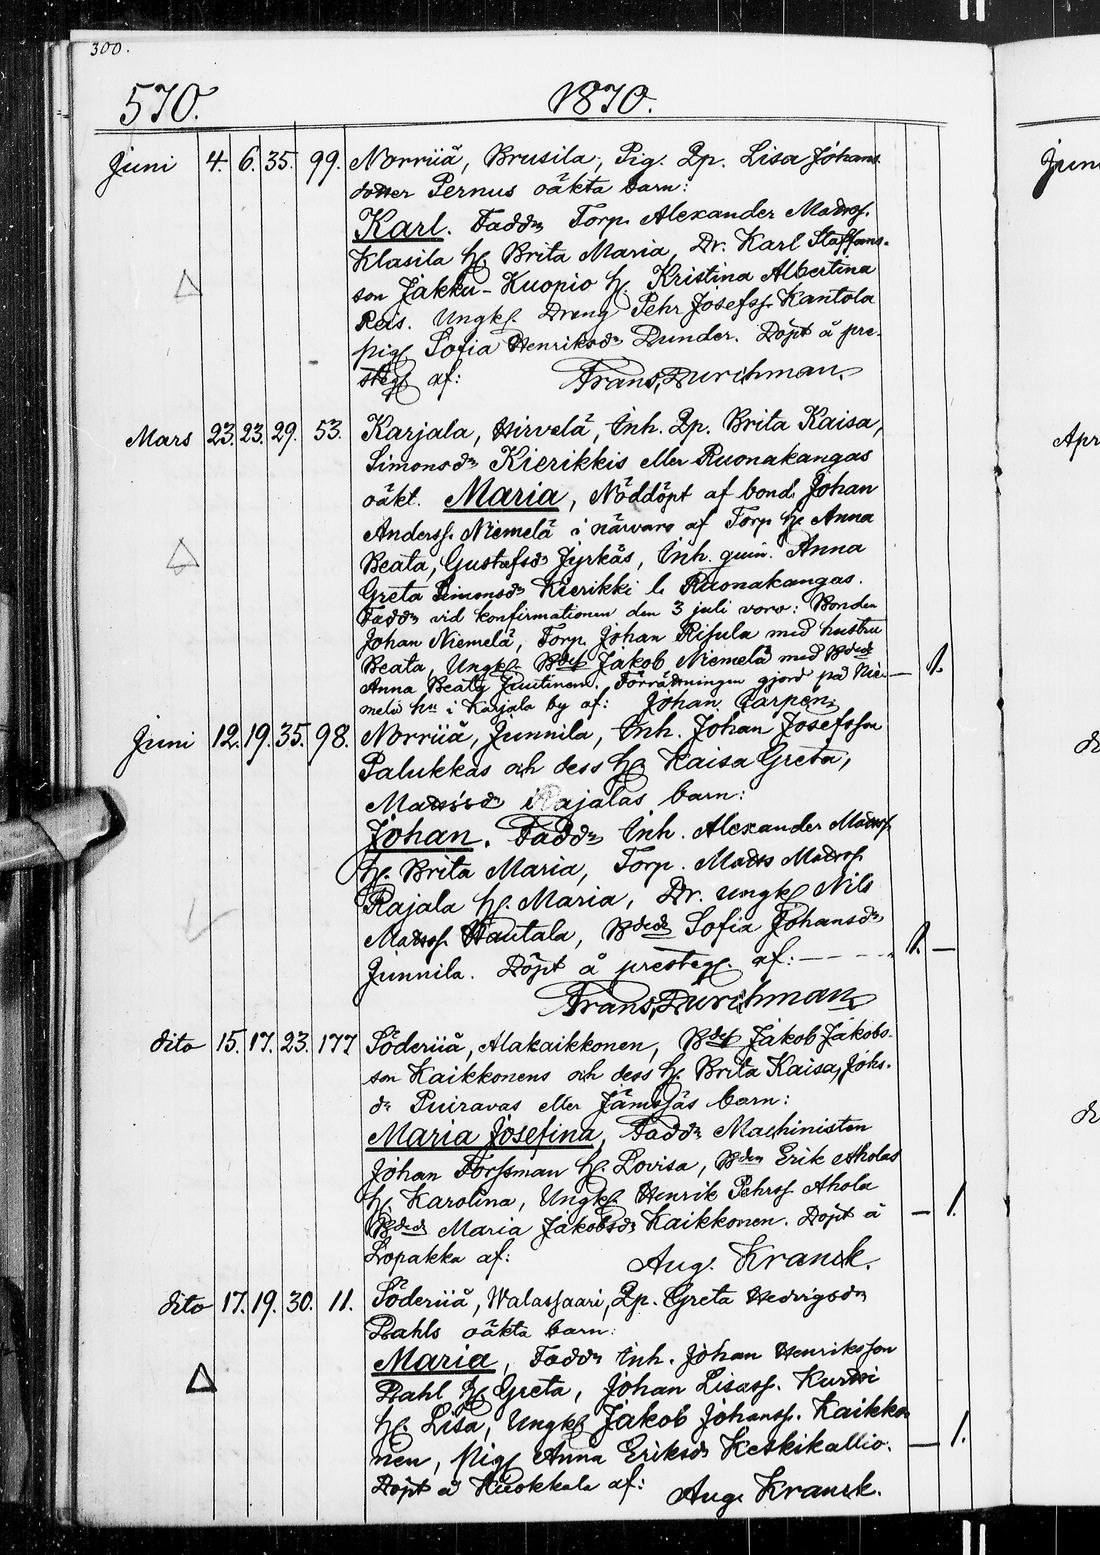 300.
570. 1870.
Juni 4. 6. 35. 99. Norriiå, Brusila, Pig. Qp. Lisa Johans
dotter Pernus oäkta barn:
Karl. Faddr Torp. Alexander Madss.
Klasila h. Brita Maria, Dr. Karl Staffans-
son Jakku-Kuopio h. Kristina Albertina
Reis. Ungk. Dreng Pehr Josefss. Kantola
pig. Sofia Henriksdr Dunder. Döpt å pre-
steg. af: Frans, Durchman.
Mars 23. 23. 29. 53. Karjala, Hirvelä, Inh. Qp. Brita Kaisa,
Simonsdr Kierikkis eller Ruonakangas
oäkt. Maria, Nöddöpt af bond. Johan
Anderss. Niemelä i närvaro af Torp. h. Anna
Beata, Gustafsdr Jyrkäs, Inh. quin. Anna
Greta Simonsdr Kierikki l. Ruonakangas.
Faddr vid konfirmationen den 3 juli voro: Bonden
Johan Niemelä, Torp. Johan Rifula med hustru
Beata, Ungk. Bdes Jakob Niemelä med Bdedr
Anna Beata Juutinen. Förrättningen gjord på Nie- — 1.
melä hn i Karjala by af: Johan Carpén.
Juni 12. 19. 35. 98. Norriiå, Junnila, Inh. Johan Josefsson
Palukkas och dess h. Kaisa Greta,
Matsdr Rajalas barn:
Johan. Faddr Inh. Alexander Madss.
h. Brita Maria, Torp. Mats Madss.
Rajala h. Maria, Dr. ungk. Nils
Madss. Hautala, Bdedr Sofia Johansdr
Junnila. Döpt å presteg. af: - - - - 1. —
Frans, Durchman
dito 15. 17. 23. 177 Söderiiå, Alakaikkonen, Bdes Jakob Jakobs-
son Kaikkonens och dess h. Brita Kaisa, Johs.
dr Puiravas eller Jämsjäs barn:
Maria Josefina, Faddr Machinisten
Johan Forssman h. Lovisa, Bden Erik Aholas
h. Karolina, Ungk. Henrik Pehrss. Ahola
Bdedr Maria Jakobsdr Kaikkonen. Döpt å — 1.
Lopakka af: Aug. Kranck.
dito 17. 19. 30. 11. Söderiiå, Walassaari, Qp. Greta Hedvigsdr
Bahls oäkta barn:
Maria, Faddr Inh. Johan Henriksson
Bahl h. Greta, Johan Lisass. Kurtti
h. Lisa, Ungk. Jakob Johanss. Kaikko
nen, Pig. Anna Eriksdr Keskikallio. — 1.
Döpt å Kuokkala af: Aug. Kranck.
Juni
Apr